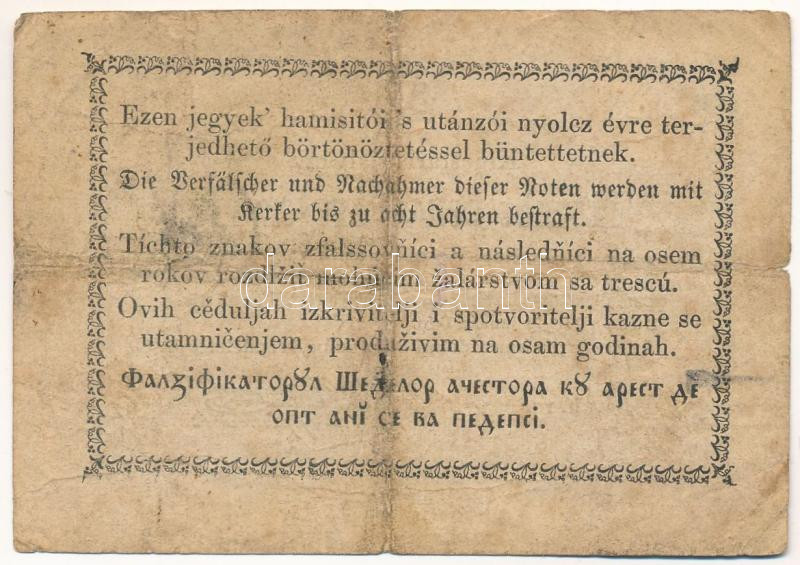 Ezen jegyek' hamisitói 's utánzói nyolcz évre ter-
jedhető börtönöztetéssel büntettetnek.
Die Verfälscher und Nachahmer dieser Noten werden mit
Kerker bis zu acht Jahren bestraft.
Tíchto znakov zfalssovňíci a následňíci na osem
rokov rozdlžiť mohúcim žalárstvom sa trescú.
Ovih cěduljah izkrivitelji i spotvoritelji kazne se
utamničenjem, produživim na osam godinah.
Фалзіфікаторꙋл Шеделор ачестора кꙋ арест де
опт анĭ се ва педепсі.
darabanth